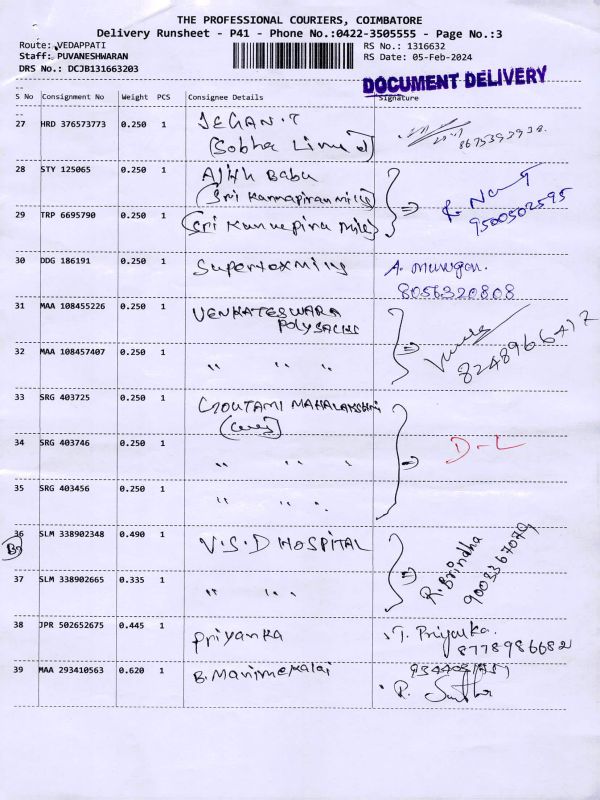 THE PROFESSIONAL COURIERS, COIMBATORE
Delivery Runsheet - P41 - Phone No.:0422-3505555 - Page No.:3
Route: VEDAPPATI
RS No.: 1316632
Staff: PUVANESHWARAN
RS Date: 05-Feb-2024
DRS No.: DCJB131663203
DOCUMENT DELIVERY
S No Consignment No Weight PCS Consignee Details Signature
27 HRD 376573773 0.250 1 JEGAN.T
(Sobha Limited)
28 STY 125065 0.250 1 Ajith Babu
(Sri Kannapiran Mills)
9500502595
29 TRP 6695790 0.250 1 (Sri Kannapiran Mills)
30 DDG 186191 0.250 1 Supertex Mills A. Murugan.
8056320808
31 MAA 108455226 0.250 1 VENKATESWARA
POLYSACKS
8248966412
32 MAA 108457407 0.250 1 " " "
33 SRG 403725 0.250 1 GOUTAMI MAHALAKSHMI
34 SRG 403746 0.250 1 " " " D-L
35 SRG 403456 0.250 1 " " "
36 SLM 338902348 0.490 1 V.S.D HOSPITAL R. Brindha
9003367079
37 SLM 338902665 0.335 1 " " "
38 JPR 502652675 0.445 1 Priyanka T. Priyanka.
8778986682
39 MAA 293410563 0.620 1 B. Manimekalai